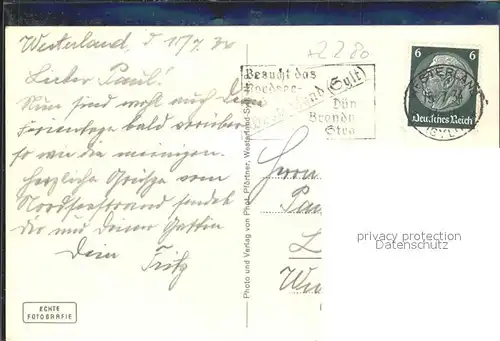 Westerland, d 11/7 36
Lieber Paul!
Nun sind wohl auch Deine
Ferientage bald vorüber
so wie die meinigen.
Herzliche Grüße vom
Nordseestrand sendet
dir und Deiner Gattin
Dein Fritz
ECHTE
FOTOGRAFIE
Photo und Verlag von Phot. Pförtner, Westerland-Sylt
Besucht das
Nordsee-
Westerland (Sylt)
Dün
Brandu
Stra
6 6
Deutsches Reich
WESTERLAND
(SYLT)
Herrn
Pau
L
privacy protection
Datenschutz